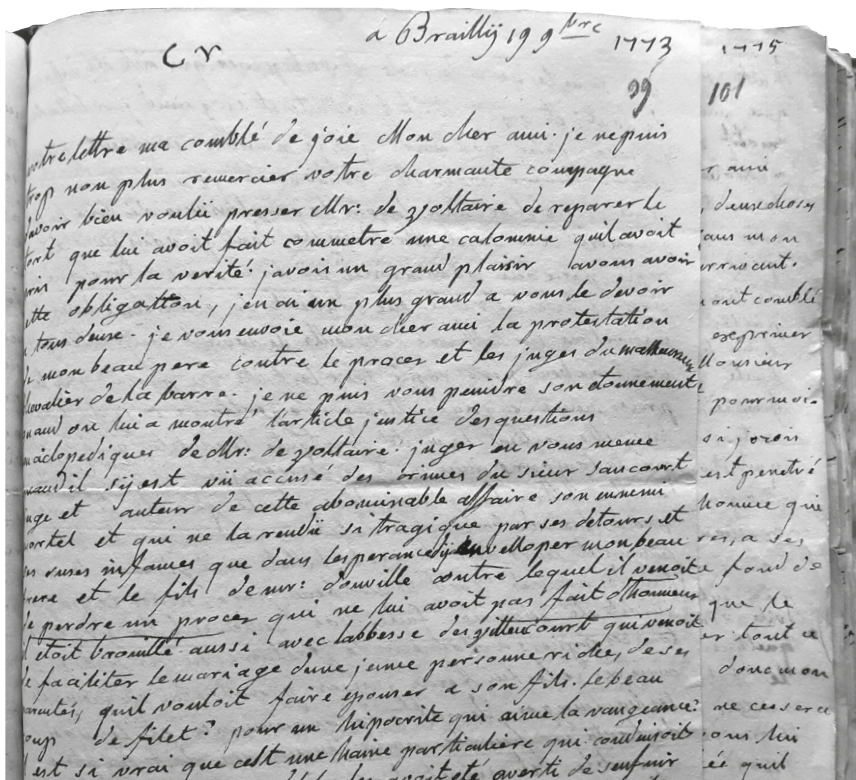 à Brailly 19 9bre 1773
CV
99
votre lettre ma comblé de joie Mon cher ami. je ne puis
trop non plus remercier votre charmante compagne
davoir bien voulü presser Mr: de voltaire de reparer le
tort que lui avoit fait commetre une calomnie quil avoit
pour la verité. javois un grand plaisir a vous avoir
cette obligation, jen ai un plus grand a vous le devoir
a tous deuse. je vous envoie mon cher ami la protestation
de mon beau pere contre le proces et les juges du malheureux
chevalier de la barre. je ne puis vous peindre son étonnement
quand on lui a montré larticle justice des questions
enciclopediques de Mr: de voltaire. juger en vous meme
quand il sÿ est vü accusé des crimes du sieur saucourt
juge et auteur de cette abominable affaire son ennemi
mortel et qui ne la rendü si tragique par ses detours, et
ses ruses infames que dans lesperance dÿ envelloper mon beau
frere et le fils de mr: douville contre lequel il venoit
de perdre un proces qui ne lui avoit pas fait dhonneur
il etoit brouillé aussi avec labbesse de villeucourt qui venoit
de faciliter le mariage dune jeune personne riche, de ses
parentes, quil vouloit faire epouser a son fils. le beau
coup de filet? pour un hipocrite qui aime la vangeance?
il est si vrai que cest une haine particuliere qui conduisoit
avoit été averti de senfuir
1775
101
ami
, deuse choses
dans mon
arrivant.
mont comblé
exprimer
Monsieur
pour moi.
si jozois
est penetré
homme qui
res, a ses
fond de
que le
er tout ce
donc mon
ne cessera
ous lui
ée quil